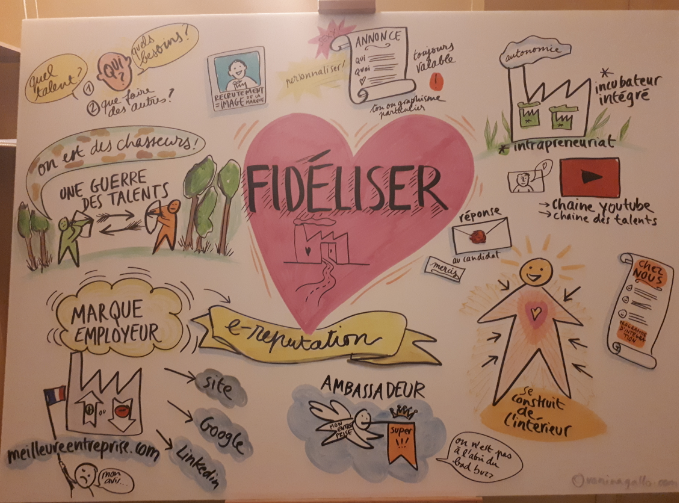 quel
talent?
QUI
?
quels
besoins?
① 
② que faire
des autres?
RECRUTEMENT
=IMAGE DE LA MARQUE
personnaliser!
ANNONCE
QUI
QUOI
toujours
valable
ton ou graphisme
particulier
autonomie
* incubateur
intégré
* intrapreneuriat
on est des chasseurs!
UNE GUERRE
DES TALENTS
FIDÉLISER
→ chaîne youtube
→ chaîne des talents
réponse
au candidat
merci
CHEZ
NOUS
MARQUE
EMPLOYEUR
e-reputation
site
Google
Linkedin
ou
meilleureentreprise.com
mon
avis
AMBASSADEUR
MON
ENTRE
PRISE
super
!!!
on n'est pas
à l'abri du
bad buzz
se
construit
de
l'intérieur